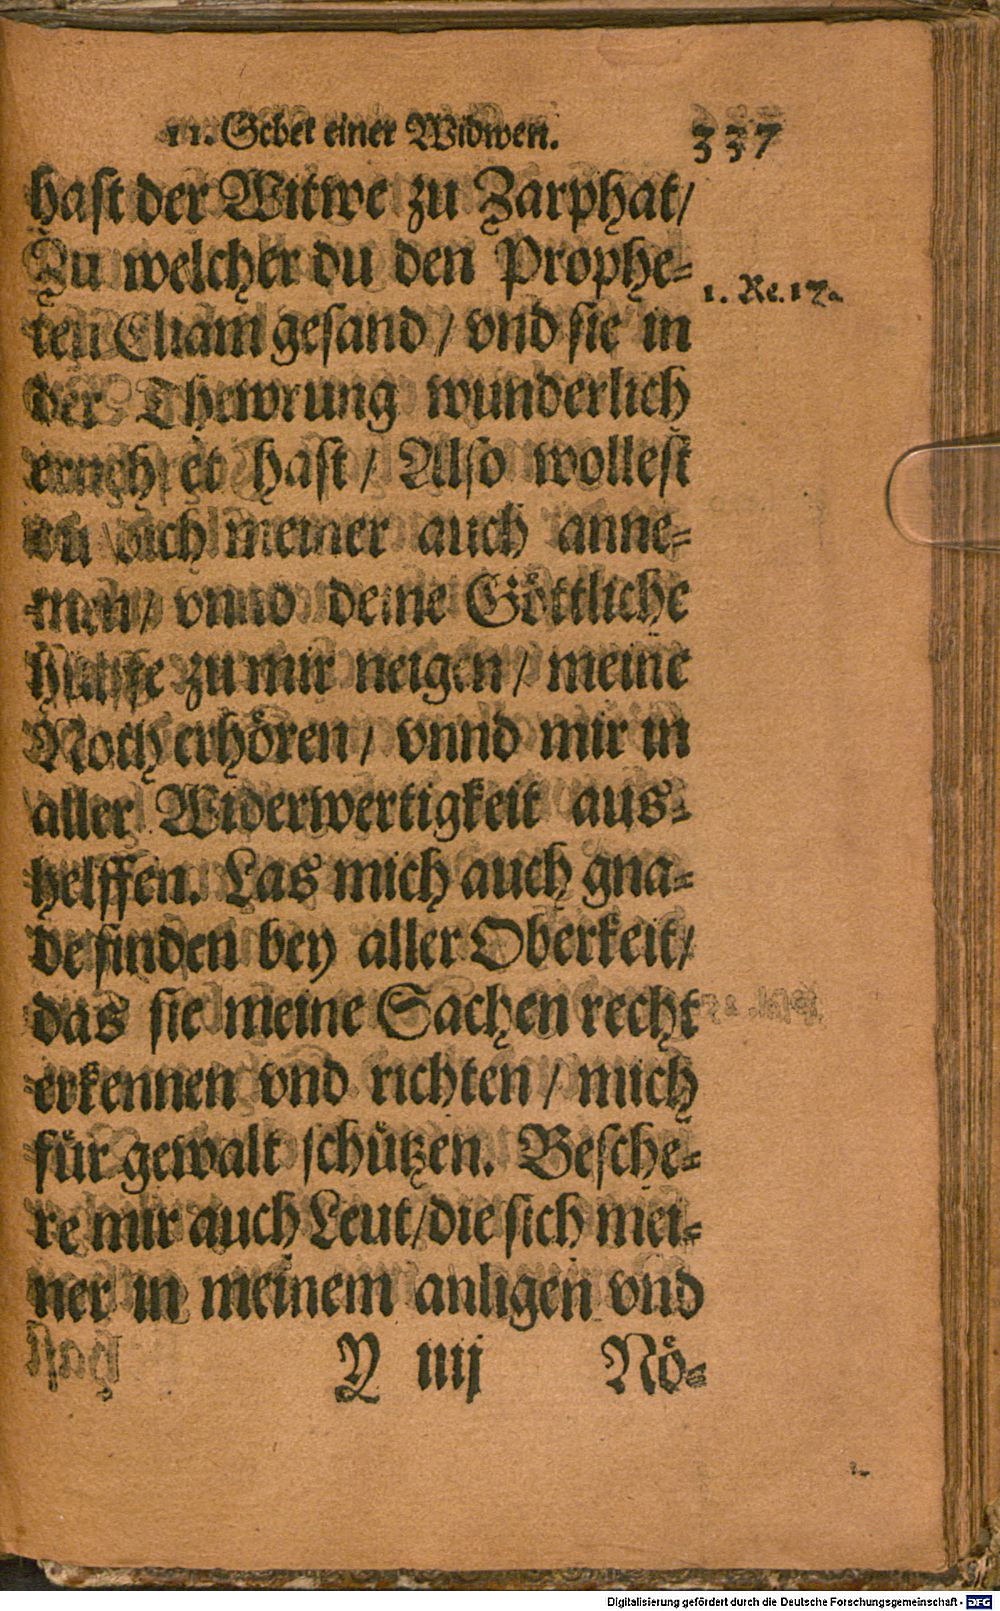 11. Gebet einer Widwen. 337
hast der Witwe zu Zarphat/
Zu welcher du den Prophe-
1. Re. 17.
ten Eliam gesand / vnd sie in
der Thewrung wunderlich
hast / Also wollest
du dich meiner auch anne-
men/ vnnd deine Göttliche
Hülffe zu mir neigen / meine
Noth erhören / vnnd mir in
aller Widerwertigkeit aus-
helffen. Las mich auch gna-
de finden bey aller Oberkeit/
das sie meine Sachen recht
erkennen vnd richten / mich
für gewalt schützen. Besche-
re mir auch Leut/die sich mei-
ner in meinem anligen vnd
Y iiij Nö-
Digitalisierung gefördert durch die Deutsche Forschungsgemeinschaft - DFG